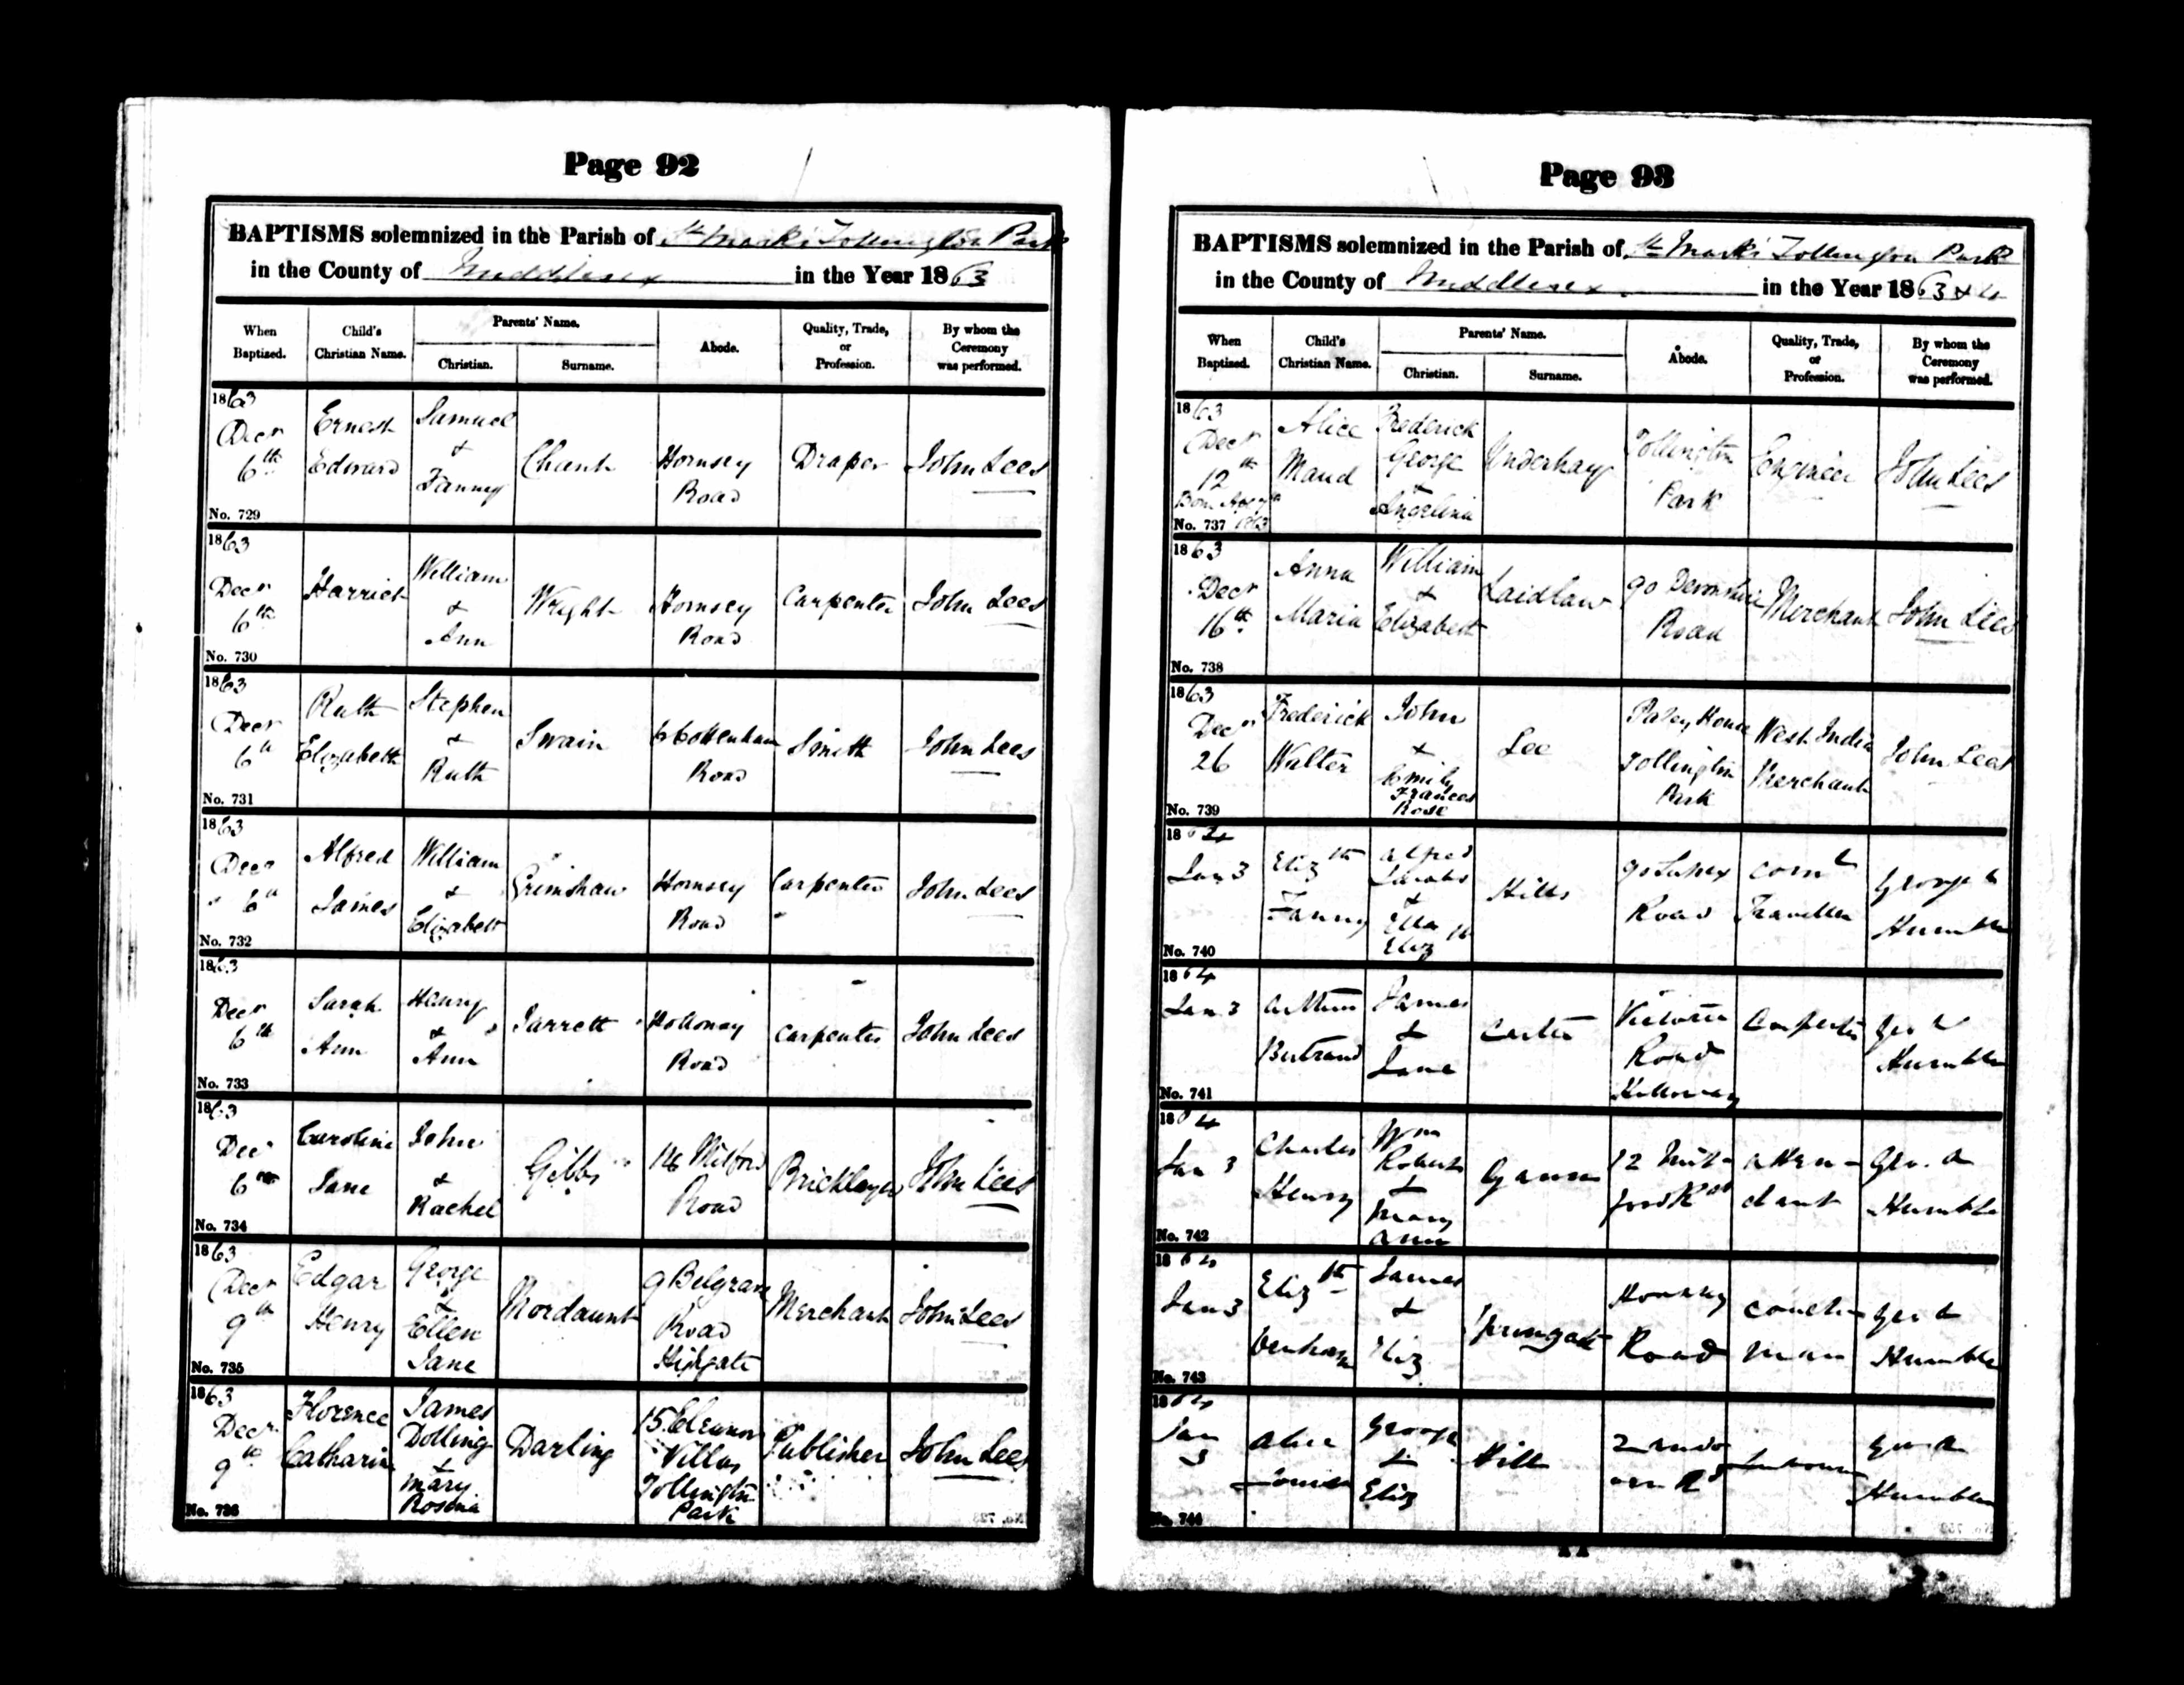 Page 92
BAPTISMS solemnized in the Parish of St Mark's Tollington Park
in the County of Middlesex in the Year 1863
When Baptized.
Child's Christian Name.
Parents' Name.
Christian.
Surname.
Abode.
Quality, Trade, or Profession.
By whom the Ceremony was performed.
1863
Decr 6th
Ernest Edward
Samuel & Fanny
Chant
Hornsey Road
Draper
John Lees
No. 729
1863
Decr 6th
Harriet
William & Ann
Wright
Hornsey Road
Carpenter
John Lees
No. 730
1863
Decr 6th
Ruth Elizabeth
Stephen & Ruth
Swain
Road
Smith
John Lees
No. 731
1863
Decr 6th
Alfred James
William & Elizabeth
Grimshaw
Hornsey Road
Carpenter
John Lees
No. 732
1863
Decr 6th
Sarah Ann
Henry & Ann
Jarrett
Holloway Road
Carpenter
John Lees
No. 733
1863
Decr 6th
Caroline Jane
John & Rachel
Gibbs
Milford Road
Bricklayer
John Lees
No. 734
1863
Decr 9th
Edgar Henry
George & Ellen Jane
Mordaunt
9 Belgrave Road Highgate
Merchant
John Lees
No. 735
1863
Decr 9th
Florence Catharine
James Dolling & Mary Rosina
Darling
15 Eleanor Villas Tollington Park
Publisher
John Lees
No. 736
Page 93
BAPTISMS solemnized in the Parish of St Mark's Tollington Park
in the County of Middlesex in the Year 1863 & 4
When Baptized.
Child's Christian Name.
Parents' Name.
Christian.
Surname.
Abode.
Quality, Trade, or Profession.
By whom the Ceremony was performed.
1863
Decr 12th
Born 1863
Alice Maud
Frederick George & Angelina
Underhay
Tollington Park
Engineer
John Lees
No. 737
1863
Decr 16th
Anna Maria
William & Elizabeth
Laidlaw
90 Devonshire Road
Merchant
John Lees
No. 738
1863
Decr 26
Frederick Walter
John & Emily Frances Rose
Lee
House Tollington Park
West India Merchant
John Lees
No. 739
1864
Jan 3
Elizth Fanny
Alfred Jacobs & Ellen Elizth
Hills
90 Sussex Road
Coml Traveller
George A Humble
No. 740
1864
Jan 3
Arthur Bertrand
James & Jane
Carter
Victoria Road Holloway
Carpenter
Geo A Humble
No. 741
1864
Jan 3
Charles Henry
Wm Robert & Mary Ann
Gann
12 Milford Rd
Attendant
Geo. A Humble
No. 742
1864
Jan 3
Elizth
James & Eliz
Hornsey Road
Coachman
Geo A Humble
No. 743
1864
Jan 3
Alice Louisa
George & Eliz
Hill
Rd
Geo A Humble
No. 744